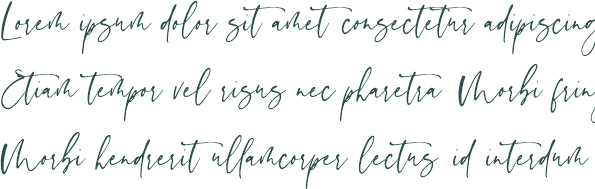 Lorem ipsum dolor sit amet consectetur adipiscing
Etiam tempor vel risus nec pharetra Morbi fring
Morbi hendrerit ullamcorper lectus id interdum